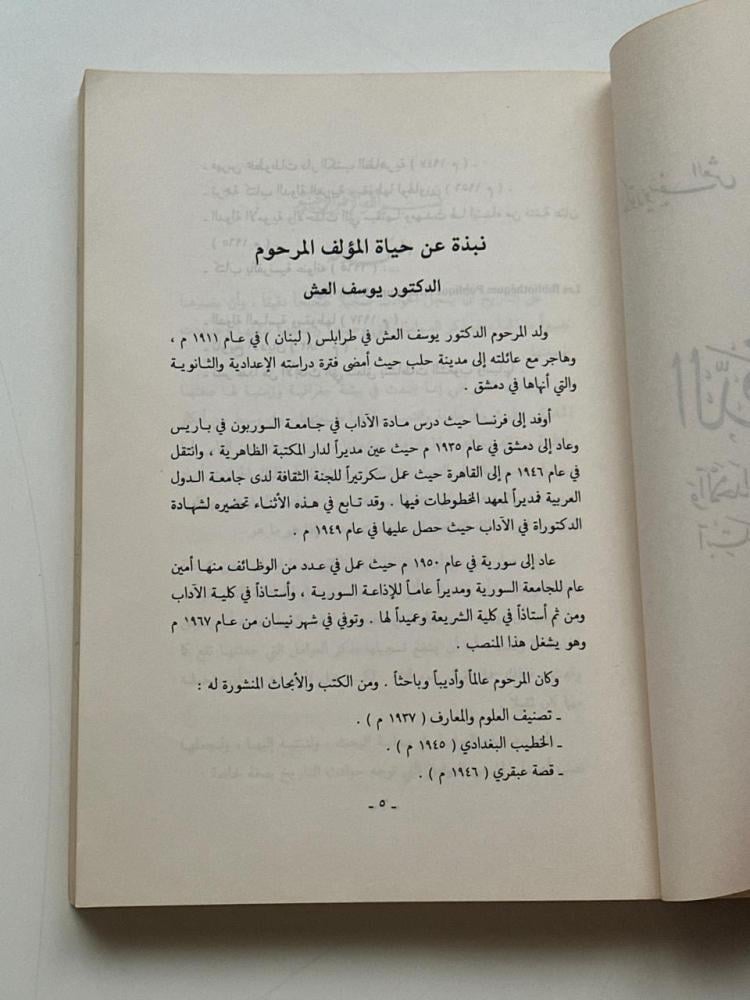 نبذة عن حياة المؤلف المرحوم
الدكتور يوسف العش
ولد المرحوم الدكتور يوسف العش في طرابلس ( لبنان ) في عام ١٩١١ م ،
وهاجر مع عائلته إلى مدينة حلب حيث أمضى فترة دراسته الإعدادية والثانوية
والتي أنهاها في دمشق .
أوفد إلى فرنسا حيث درس مادة الآداب في جامعة السوربون في باريس
وعاد إلى دمشق في عام ١٩٣٥ م حيث عين مديراً لدار المكتبة الظاهرية ، وانتقل
في عام ١٩٤٦ م إلى القاهرة حيث عمل سكرتيراً للجنة الثقافة لدى جامعة الدول
العربية فمديراً لمعهد المخطوطات فيها . وقد تابع في هذه الأثناء تحضيره لشهادة
الدكتوراة في الآداب حيث حصل عليها في عام ١٩٤٩ م .
عاد إلى سورية في عام ١٩٥٠ م حيث عمل في عدد من الوظائف منها أمين
عام للجامعة السورية ومديراً عاماً للإذاعة السورية ، وأستاذاً في كلية الآداب
ومن ثم أستاذاً في كلية الشريعة وعميداً لها . وتوفي في شهر نيسان من عام ١٩٦٧ م
وهو يشغل هذا المنصب .
وكان المرحوم عالماً وأديباً وباحثاً . ومن الكتب والأبحاث المنشورة له :
ـ تصنيف العلوم والمعارف ( ١٩٣٧ م ) .
ـ الخطيب البغدادي ( ١٩٤٥ م ) .
ـ قصة عبقري ( ١٩٤٦ م ) .
ـ ٥ ـ